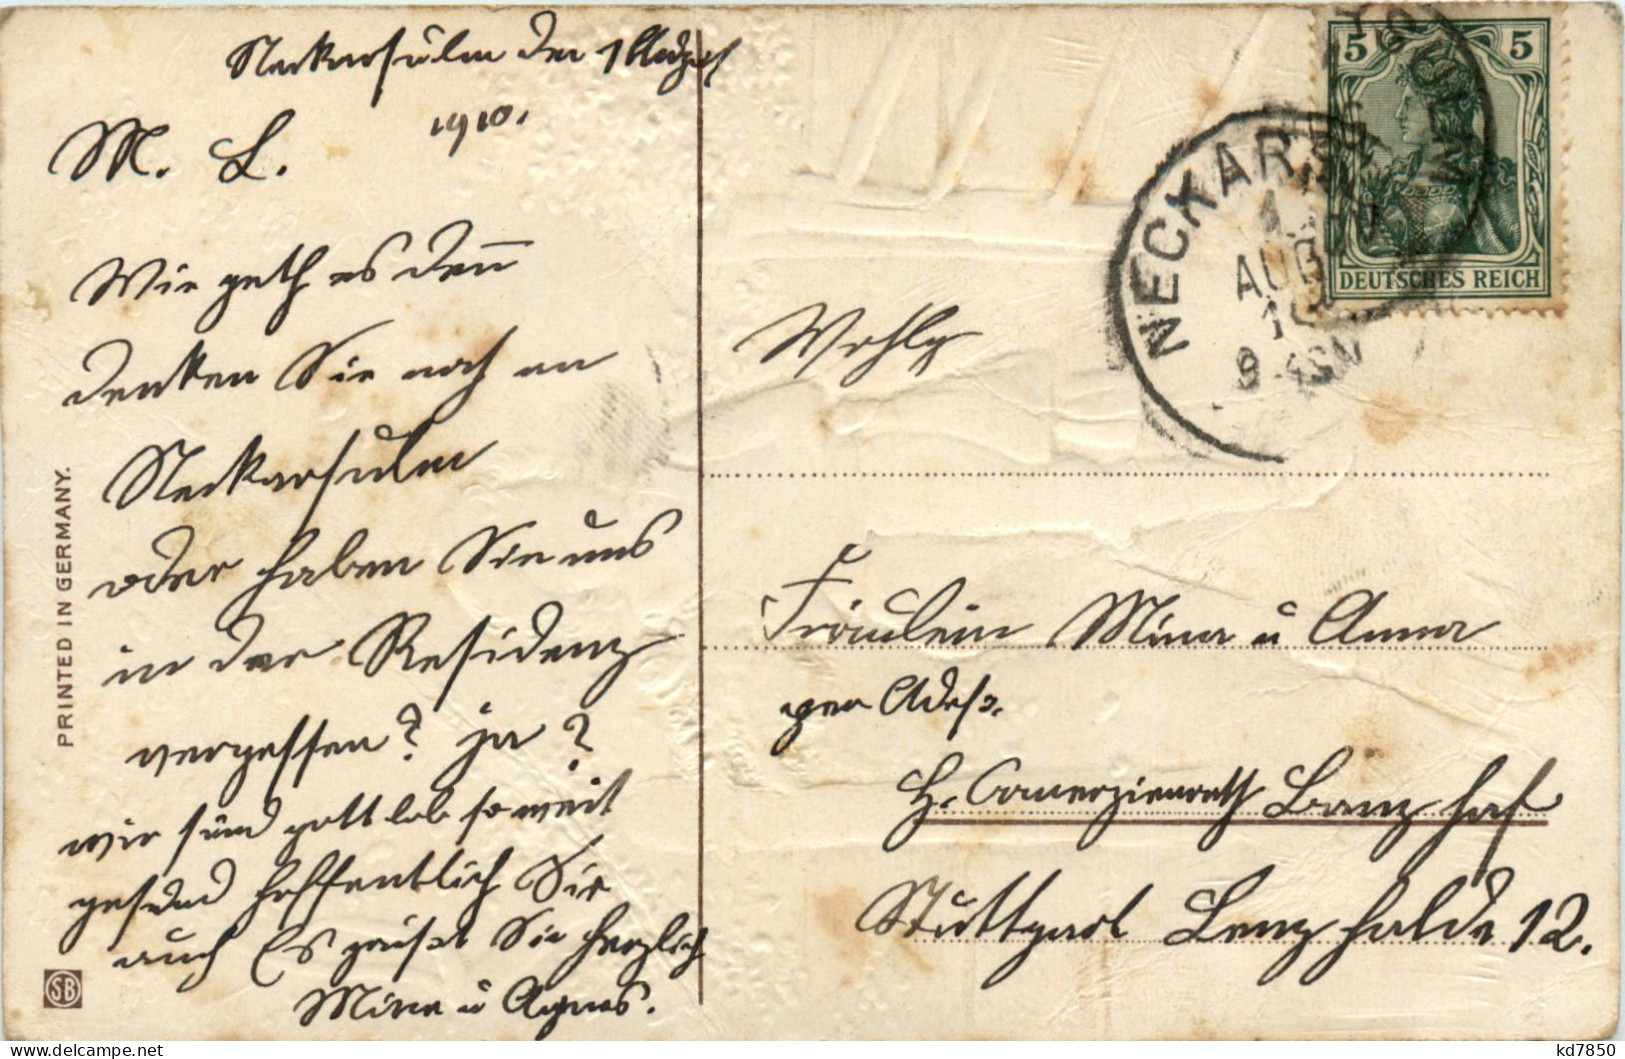 Neckarsulm den 1 August
1910.
M. L.
Wie geth es denn
denken Sie noch an
Neckarsulm
oder haben Sie uns
in der Residenz
vergessen? ja?
wir sind gott lob so weit
gesund hoffentlich Sie
auch Es grüßt Sie herzlich
Mina u Agnes.
PRINTED IN GERMANY.
SB
5 5
DEUTSCHES REICH
NECKARSULM
1.
AUG
10
Wohlg
Fräulein Mina u Anna
per Adrß.
H. Comerzienrath Banzhaf
Stuttgart Lenzhalde 12.
kd7850